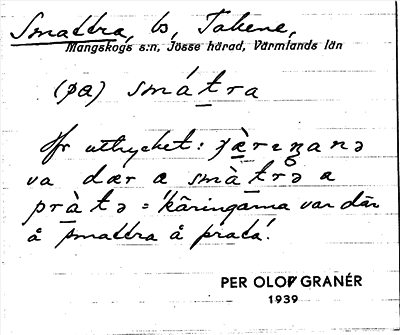 Smattra, vb, Takene,
Mangskogs s:n, Jösse härad, Värmlands län
(pa) smátra
Ur uttrycket: çæ̀reŋana
va dær a smàtrə a
pràtə = 'käringarna var där
å smattra å prata'.
PER OLOF GRANÉR
1939